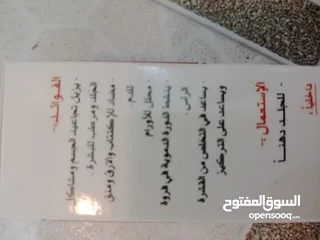 الفوائد:-
- يزيل تجاعيد الجسم ومشاكل
الجلد ومرطب للبشرة.
- مضاد للإكتئاب والارق ومنق
للدم.
- محلل للأورام
- ينشط الدورة الدموية في فروة
الرأس.
- يساعد في التخلص من القشرة
ويساعد على التركيز
الإستعمال :-
- للجلد دهناً
داخلياً:
السوق المفتوح
opensooq.com